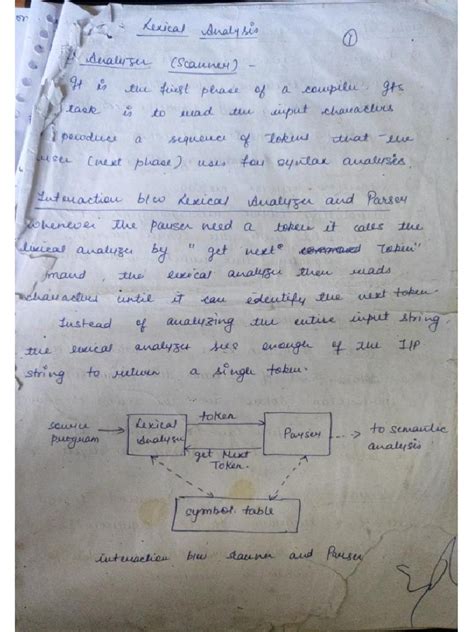 Lexical Analysis
1
Analyzer (Scanner) -
It is the first phase of a compiler. Its
task is to read the input characters
produce a sequence of Tokens that the
(next phase) uses for syntax analysis.
Interaction b/w Lexical Analyzer and Parser
Whenever the parser need a token it calls the
lexical analyzer by "get next Token"
mand, the lexical analyzer then reads
characters until it can identify the next token.
Instead of analyzing the entire input string,
the lexical analyzer sees enough of the I/P
string to return a single token.
source
program
Lexical
Analyzer
token
get Next
Token.
Parser
to semantic
analysis
symbol table
interaction b/w scanner and Parser